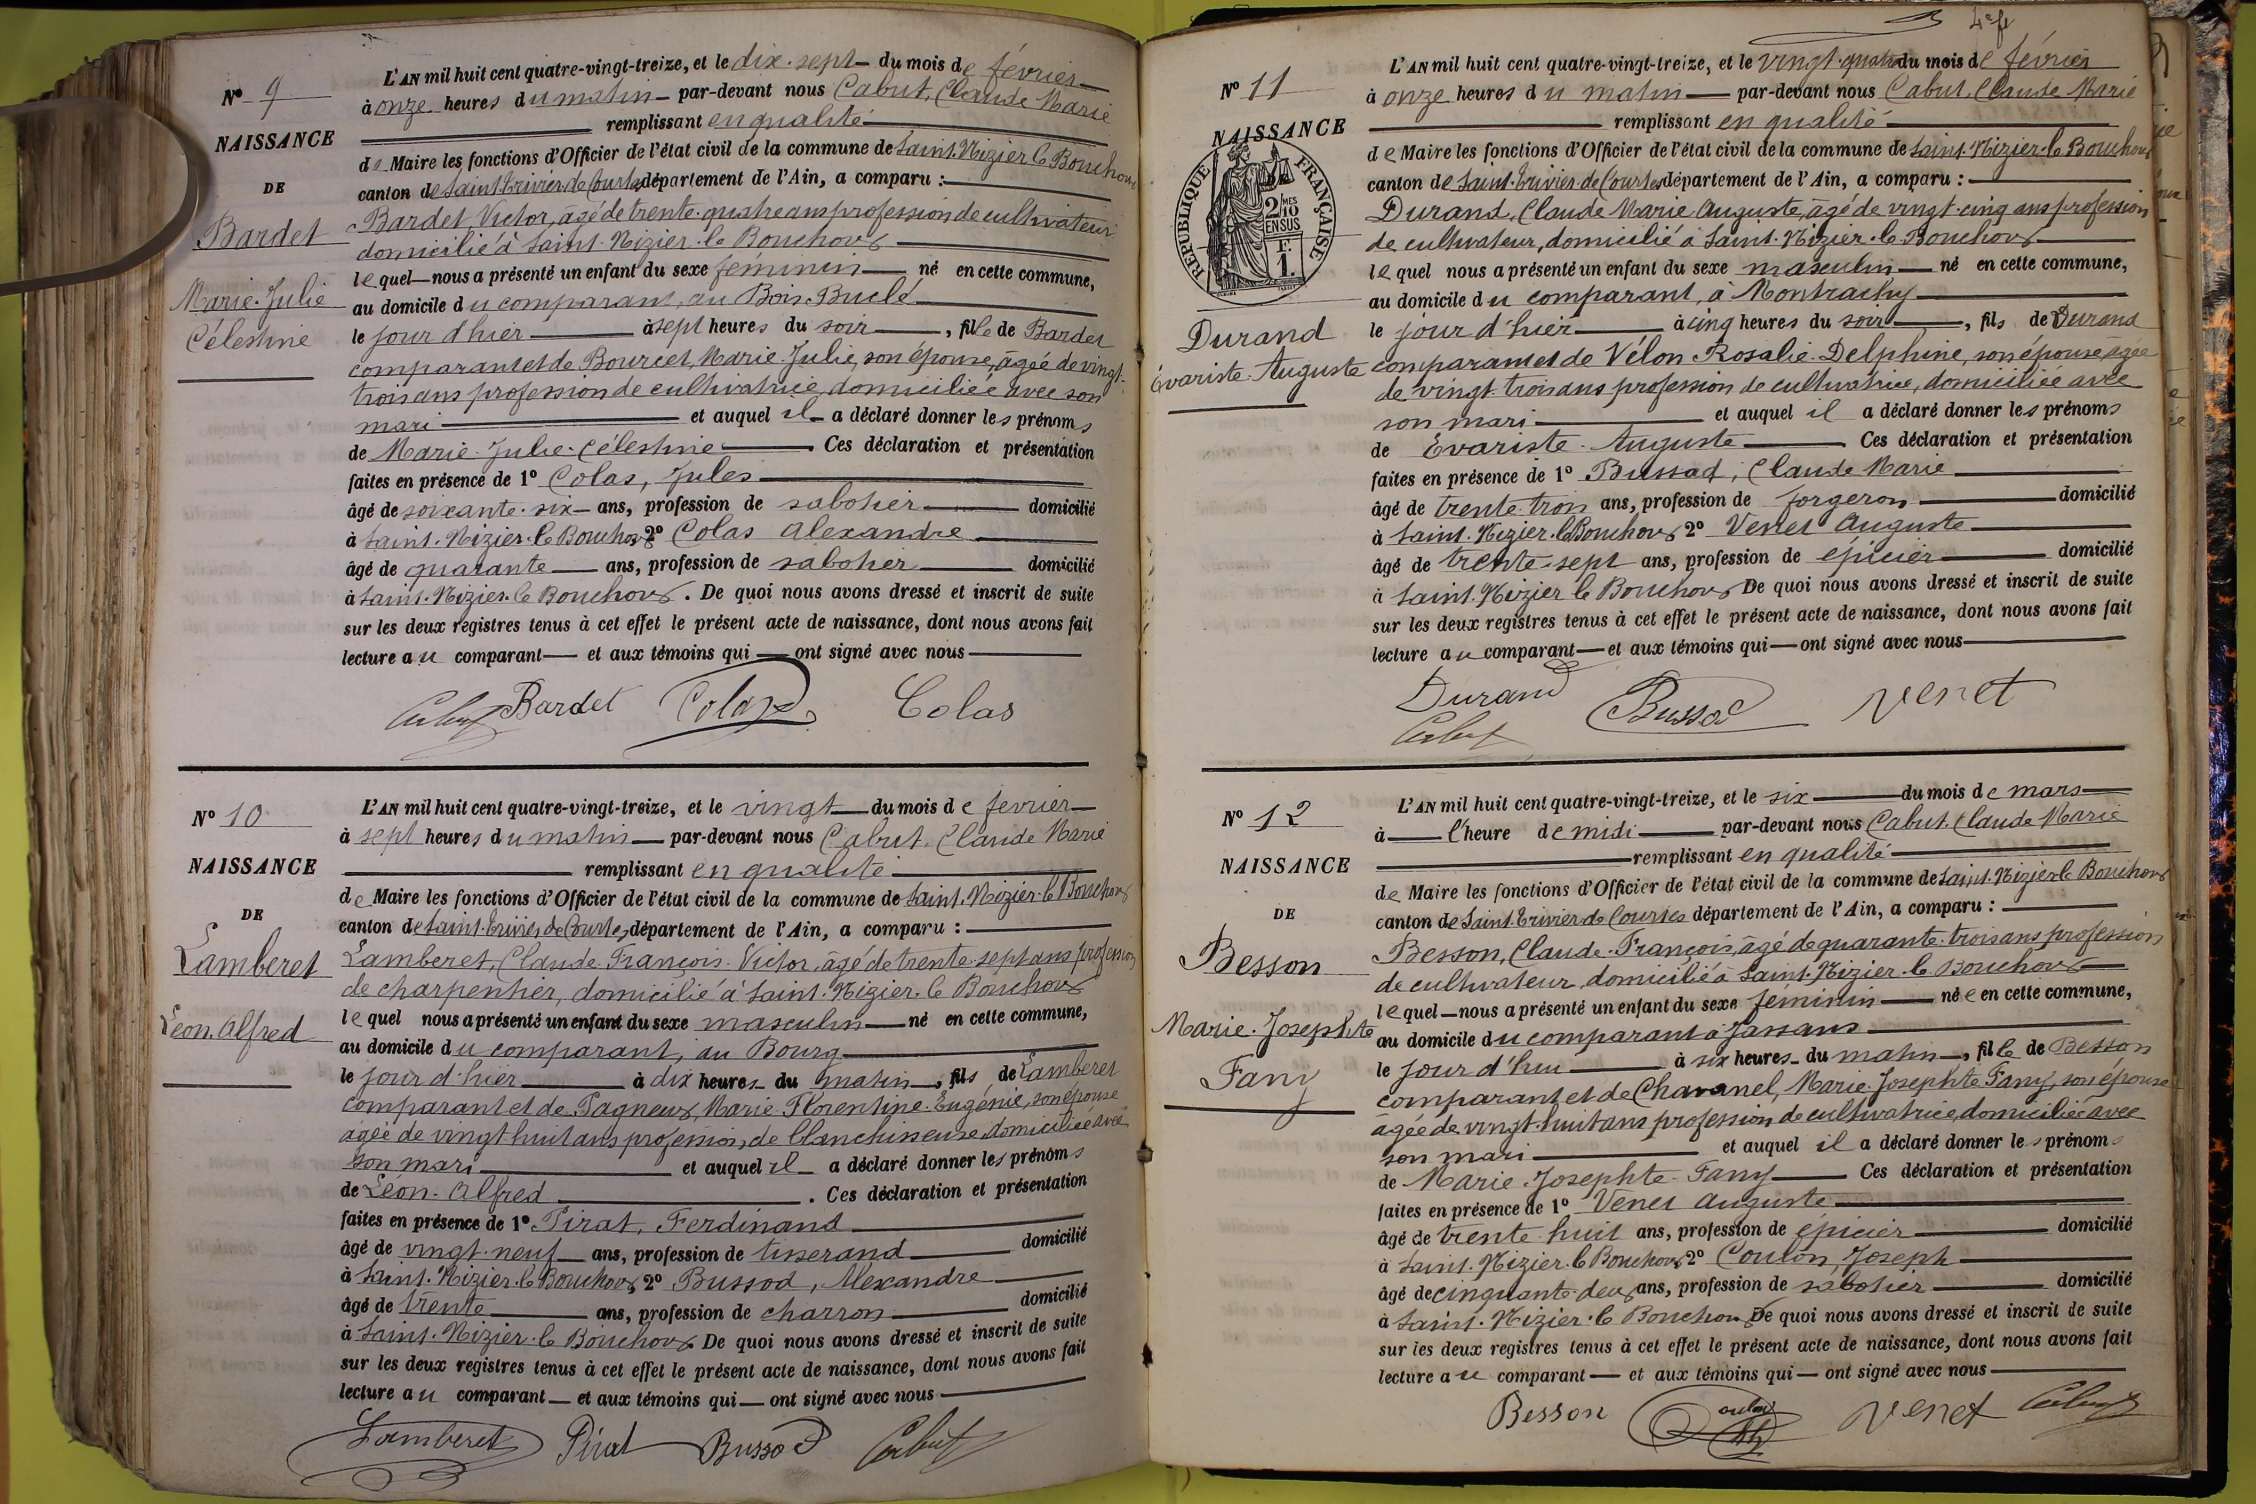 N° 9
NAISSANCE
DE
Bardet
Marie-Julie
Célestine
L'AN mil huit cent quatre-vingt-treize, et le dix-sept du mois de février
à onze heures du matin par-devant nous Cabut, Claude Marie
remplissant en qualité
de Maire les fonctions d'Officier de l'état civil de la commune de Saint-Nizier-le-Bouchoux
canton de Saint-Trivier-de-Courtes département de l'Ain, a comparu :
Bardet Victor, âgé de trente-quatre ans profession de cultivateur
domicilié à Saint-Nizier-le-Bouchoux
lequel nous a présenté un enfant du sexe féminin né en cette commune,
au domicile du comparant, au Bois-Buclé
le jour d'hier à sept heures du soir, fille de Bardet
comparant et de Bourcet, Marie-Julie, son épouse, âgée de vingt-
trois ans profession de cultivatrice, domiciliée avec son
mari et auquel il a déclaré donner les prénoms
de Marie-Julie-Célestine Ces déclaration et présentation
faites en présence de 1° Colas, Jules
âgé de soixante-six ans, profession de sabotier domicilié
à Saint-Nizier-le-Bouchoux 2° Colas Alexandre
âgé de quarante ans, profession de sabotier domicilié
à Saint-Nizier-le-Bouchoux. De quoi nous avons dressé et inscrit de suite
sur les deux registres tenus à cet effet le présent acte de naissance, dont nous avons fait
lecture au comparant et aux témoins qui ont signé avec nous
Cabut Bardet Colas Colas
N° 10
NAISSANCE
DE
Lamberet
Léon-Alfred
L'AN mil huit cent quatre-vingt-treize, et le vingt du mois de février
à sept heures du matin par-devant nous Cabut, Claude Marie
remplissant en qualité
de Maire les fonctions d'Officier de l'état civil de la commune de Saint-Nizier-le-Bouchoux
canton de Saint-Trivier-de-Courtes, département de l'Ain, a comparu :
Lamberet, Claude-François-Victor, âgé de trente-sept ans profession
de charpentier, domicilié à Saint-Nizier-le-Bouchoux
lequel nous a présenté un enfant du sexe masculin né en cette commune,
au domicile du comparant, au Bourg
le jour d'hier à dix heures du matin, fils de Lamberet
comparant et de Pagneux, Marie-Florentine-Eugénie, son épouse
âgée de vingt huit ans profession, de blanchisseuse, domiciliée avec
son mari et auquel il a déclaré donner les prénoms
de Léon-Alfred. Ces déclaration et présentation
faites en présence de 1° Pirat, Ferdinand
âgé de vingt-neuf ans, profession de tisserand domicilié
à Saint-Nizier-le-Bouchoux, 2° Bussod, Alexandre
âgé de trente ans, profession de charron domicilié
à Saint-Nizier-le-Bouchoux De quoi nous avons dressé et inscrit de suite
sur les deux registres tenus à cet effet le présent acte de naissance, dont nous avons fait
lecture au comparant et aux témoins qui ont signé avec nous
Lamberet Pirat Bussod Cabut
4e ft
N° 11
NAISSANCE
RÉPUBLIQUE FRANÇAISE
2/10 MES
EN SUS
F.
1.
Durand
Évariste-Auguste
L'AN mil huit cent quatre-vingt-treize, et le vingt-quatre du mois de février
à onze heures du matin par-devant nous Cabut, Claude Marie
remplissant en qualité
de Maire les fonctions d'Officier de l'état civil de la commune de Saint-Nizier-le-Bouchoux
canton de Saint-Trivier-de-Courtes département de l'Ain, a comparu :
Durand, Claude Marie Auguste, âgé de vingt-cinq ans profession
de cultivateur, domicilié à Saint-Nizier-le-Bouchoux
lequel nous a présenté un enfant du sexe masculin né en cette commune,
au domicile du comparant, à Montrachy
le jour d'hier à cinq heures du soir, fils de Durand
comparant et de Vélon Rosalie-Delphine, son épouse, âgée
de vingt-trois ans profession de cultivatrice, domiciliée avec
son mari et auquel il a déclaré donner les prénoms
de Évariste-Auguste Ces déclaration et présentation
faites en présence de 1° Bussod, Claude Marie
âgé de trente-trois ans, profession de forgeron domicilié
à Saint-Nizier-le-Bouchoux 2° Venet Auguste
âgé de trente-sept ans, profession de épicier domicilié
à Saint-Nizier-le-Bouchoux De quoi nous avons dressé et inscrit de suite
sur les deux registres tenus à cet effet le présent acte de naissance, dont nous avons fait
lecture au comparant et aux témoins qui ont signé avec nous
Durand Bussod Venet
Cabut
N° 12
NAISSANCE
DE
Besson
Marie-Josephte
Fany
L'AN mil huit cent quatre-vingt-treize, et le six du mois de mars
à l'heure de midi par-devant nous Cabut, Claude Marie
remplissant en qualité
de Maire les fonctions d'Officier de l'état civil de la commune de Saint-Nizier-le-Bouchoux
canton de Saint-Trivier-de-Courtes département de l'Ain, a comparu :
Besson, Claude-François, âgé de quarante-trois ans profession
de cultivateur, domicilié à Saint-Nizier-le-Bouchoux
lequel nous a présenté un enfant du sexe féminin née en cette commune,
au domicile du comparant à Jassans
le jour d'hui à six heures du matin, fille de Besson
comparant et de Chavanel, Marie-Josephte Fany, son épouse
âgée de vingt-huit ans profession de cultivatrice, domiciliée avec
son mari et auquel il a déclaré donner les prénoms
de Marie-Josephte-Fany Ces déclaration et présentation
faites en présence de 1° Venet Auguste
âgé de trente-huit ans, profession de épicier domicilié
à Saint-Nizier-le-Bouchoux 2° Coulon, Joseph
âgé de cinquante-deux ans, profession de sabotier domicilié
à Saint-Nizier-le-Bouchoux De quoi nous avons dressé et inscrit de suite
sur les deux registres tenus à cet effet le présent acte de naissance, dont nous avons fait
lecture au comparant et aux témoins qui ont signé avec nous
Besson Coulon Venet Cabut